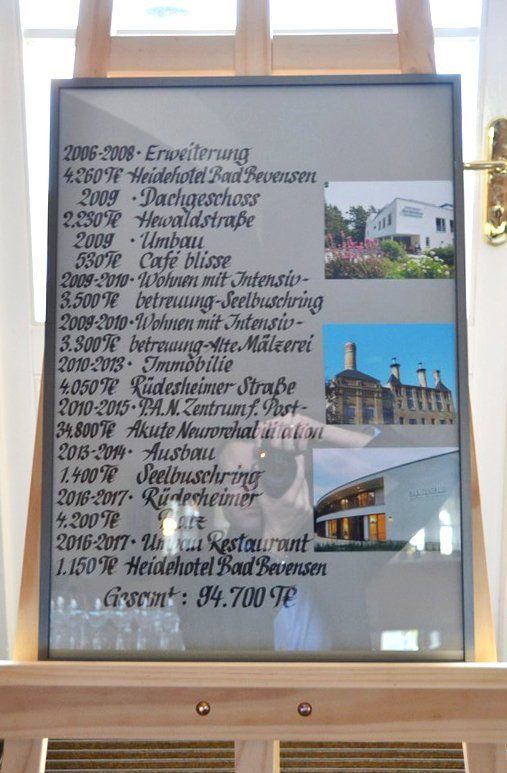 2006-2008 · Erweiterung
4.260 T€ Heidehotel Bad Bevensen
2009 · Dachgeschoss
2.230 T€ Hewaldstraße
2009 · Umbau
530 T€ Café blisse
2009-2010 · Wohnen mit Intensiv-
3.500 T€ betreuung-Seelbuschring
2009-2010 · Wohnen mit Intensiv-
3.300 T€ betreuung-Alte Mälzerei
2010-2013 · Immobilie
4.050 T€ Rüdesheimer Straße
2010-2015 · P.A.N. Zentrum f. Post-
34.800 T€ Akute Neurorehabilitation
2013-2014 · Ausbau
1.400 T€ Seelbuschring
2016-2017 · Rüdesheimer
4.200 T€ Platz
2016-2017 · Umbau Restaurant
1.150 T€ Heidehotel Bad Bevensen
Gesamt : 94.700 T€